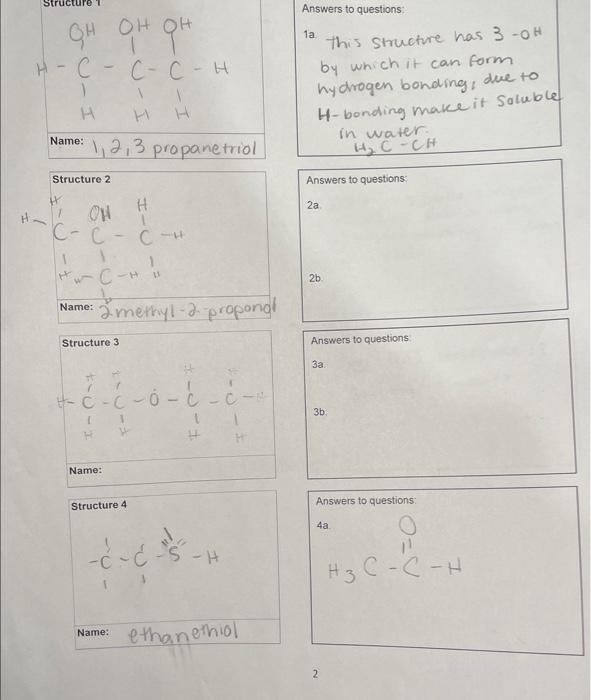 Structure 1
OH OH OH
H - C - C - C - H
H H H
Name: 1,2,3 propanetriol
Answers to questions:
1a. This structure has 3 -OH
by which it can form
hydrogen bonding, due to
H-bonding make it soluble
in water.
H2C-CH
Structure 2
H OH H
H - C - C - C - H
H - C - H H
H
Name: 2 methyl-2-propanol
Answers to questions:
2a.
2b.
Structure 3
H H H H
H - C - C - O - C - C - H
H H H H
Name:
Answers to questions:
3a.
3b.
Structure 4
- C - C - S - H
Name: ethanethiol
Answers to questions:
4a.
O
H3C - C - H
2